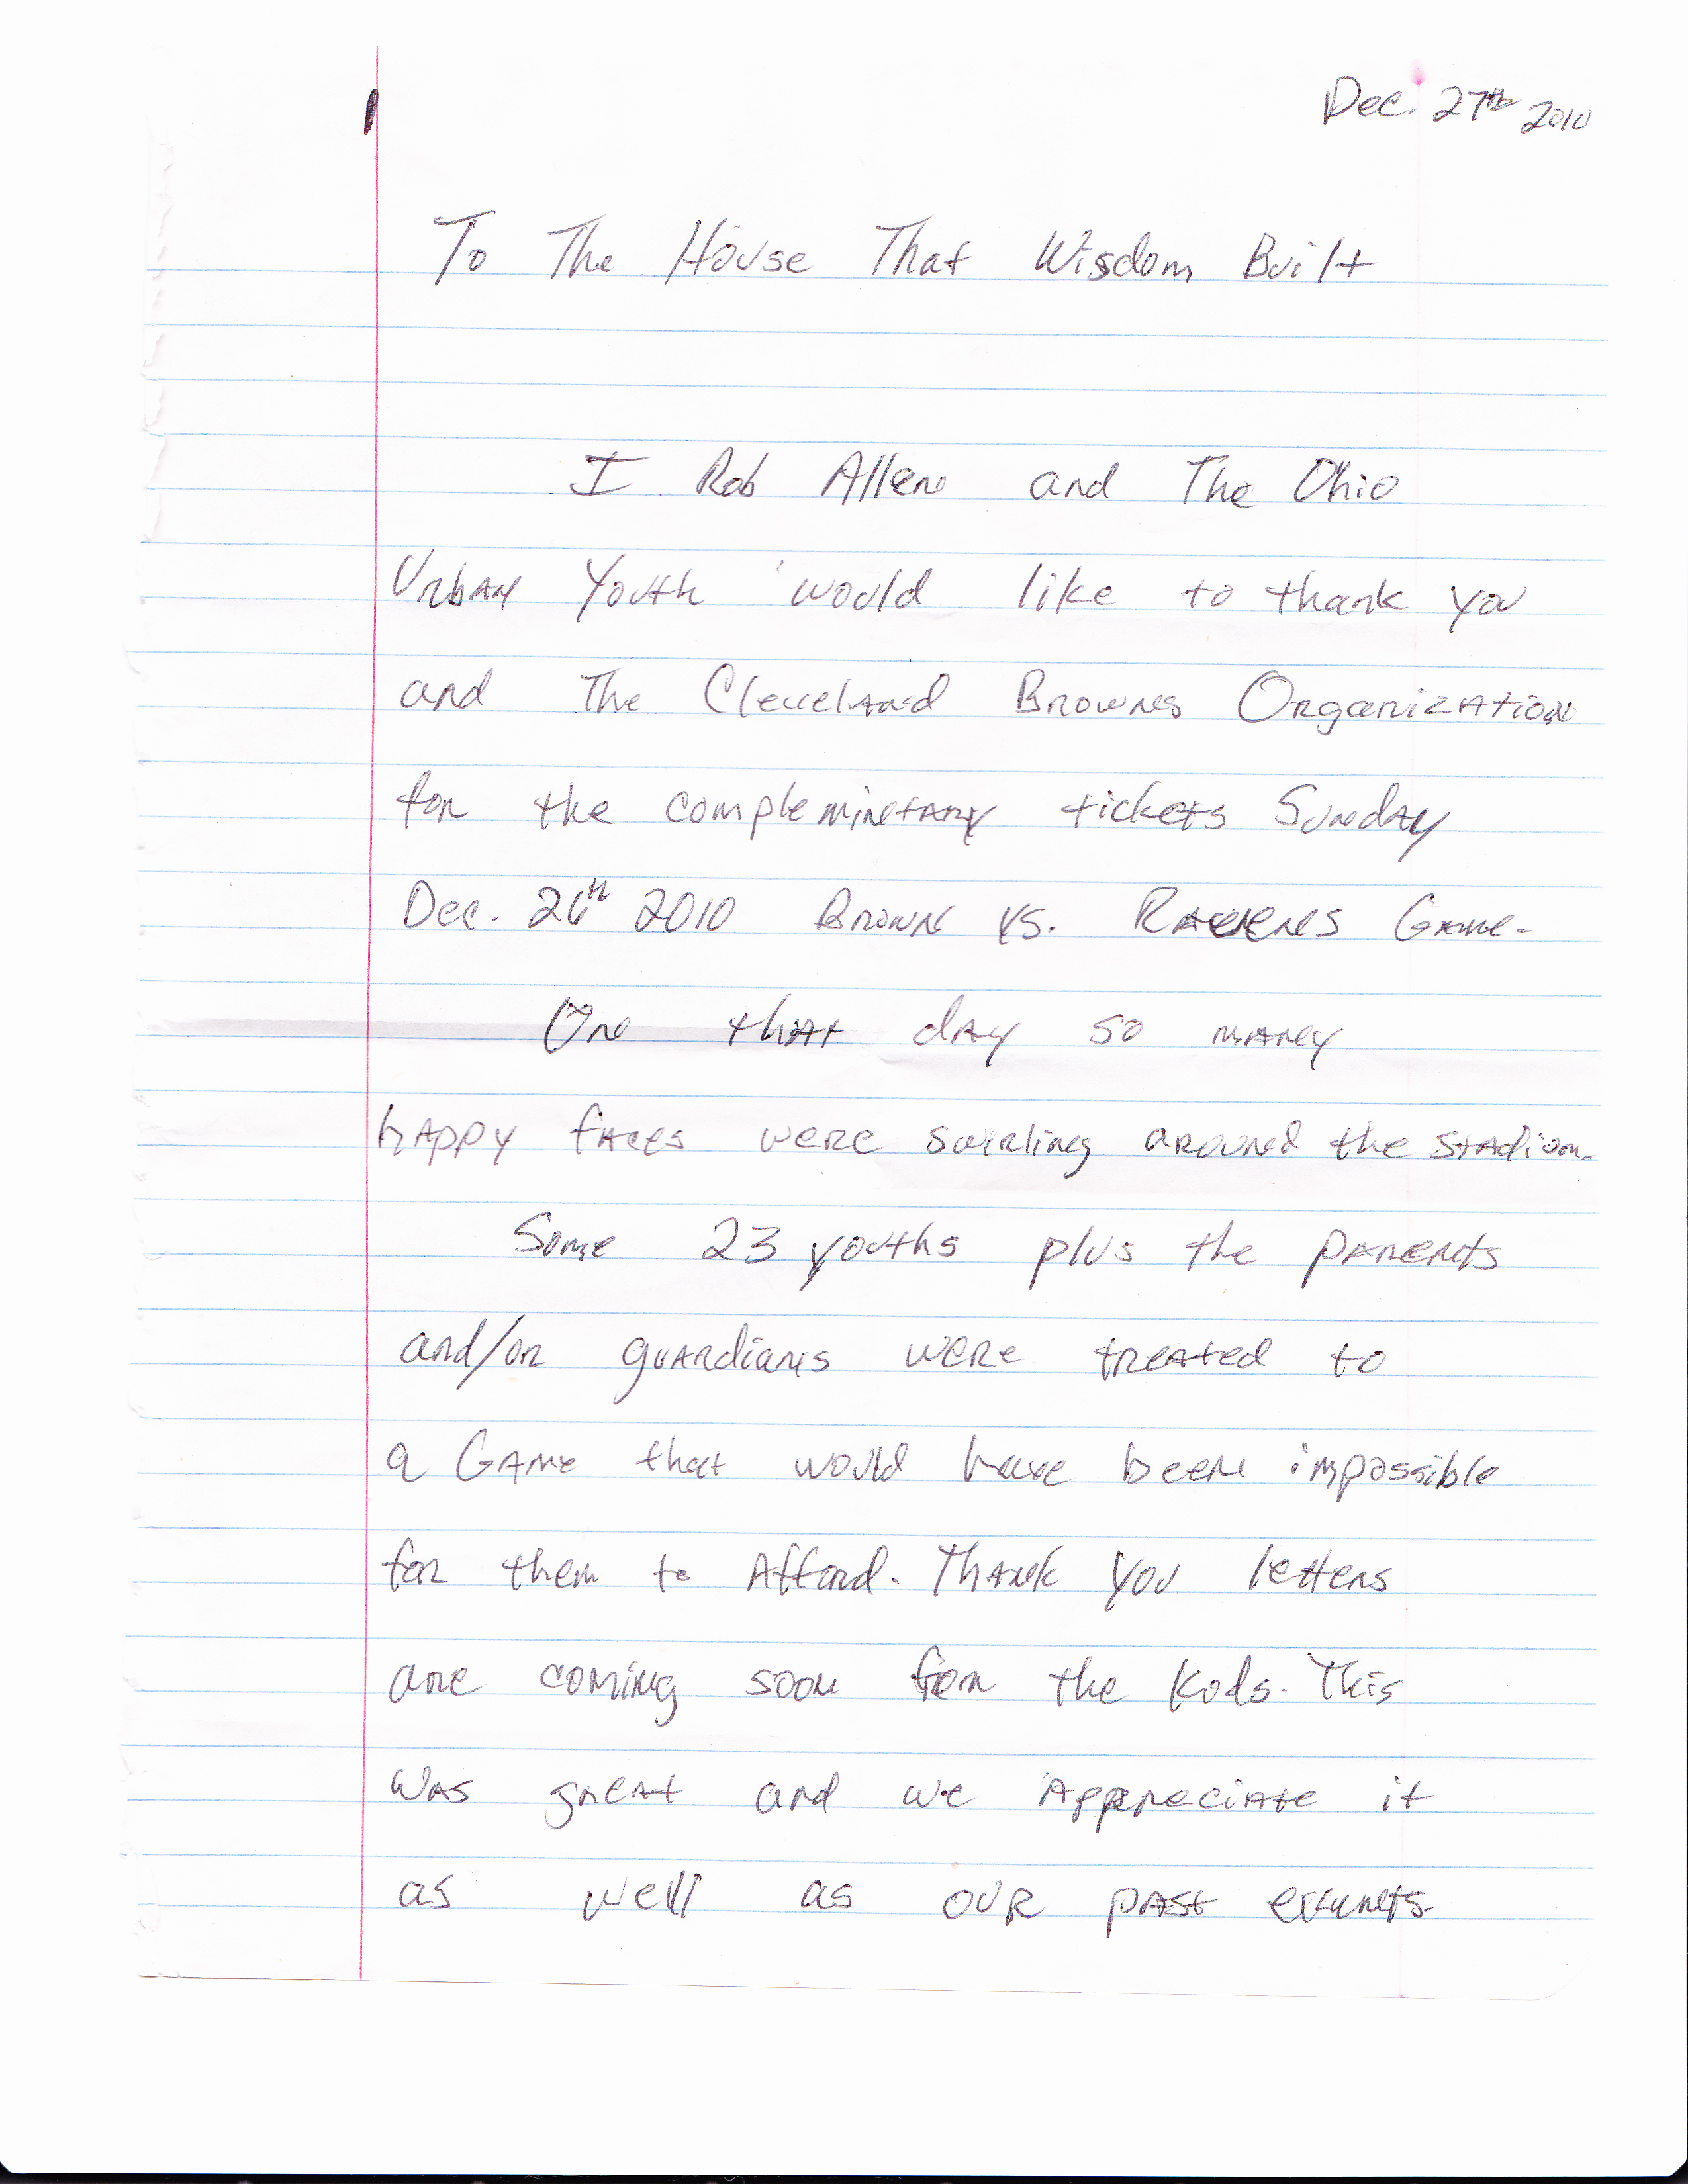 Dec. 27th 2010
To The House That Wisdom Built
I Rob Allen and The Ohio
Urban Youth would like to thank you
and The Cleveland Browns Organization
for the compleminetary tickets Sunday
Dec. 26th 2010 Brown vs. Ravens Game.
On that day so many
happy faces were swirling around the stadium.
Some 23 youths plus the parents
and/or guardians were treated to
a Game that would have been impossible
for them to Afford. Thank you letters
are coming soon from the Kids. This
was great and we Appreciate it
as well as our past events.